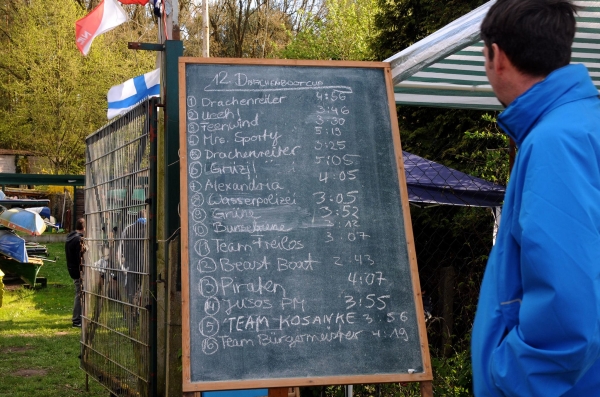 12. DRACHENBOOTCUP
① Drachenreiter 4:56
② 3:46
③ Feenwind 3:30
④ Mrs. Sporty 5:19
⑤ Drachenreiter 3:25
⑥ 5:05
⑦ Alexandria 4:05
⑧ Wasserpolizei 3:05
⑨ Grüne 3:52
⑩ 3:12
⑪ Team treilos 3:07
⑫ Beast Boat 2:43
⑬ Piraten 4:07
⑭ Jusos PM 3:55
⑮ TEAM KOSANKE 3:56
⑯ Team Bürgermeister 4:19